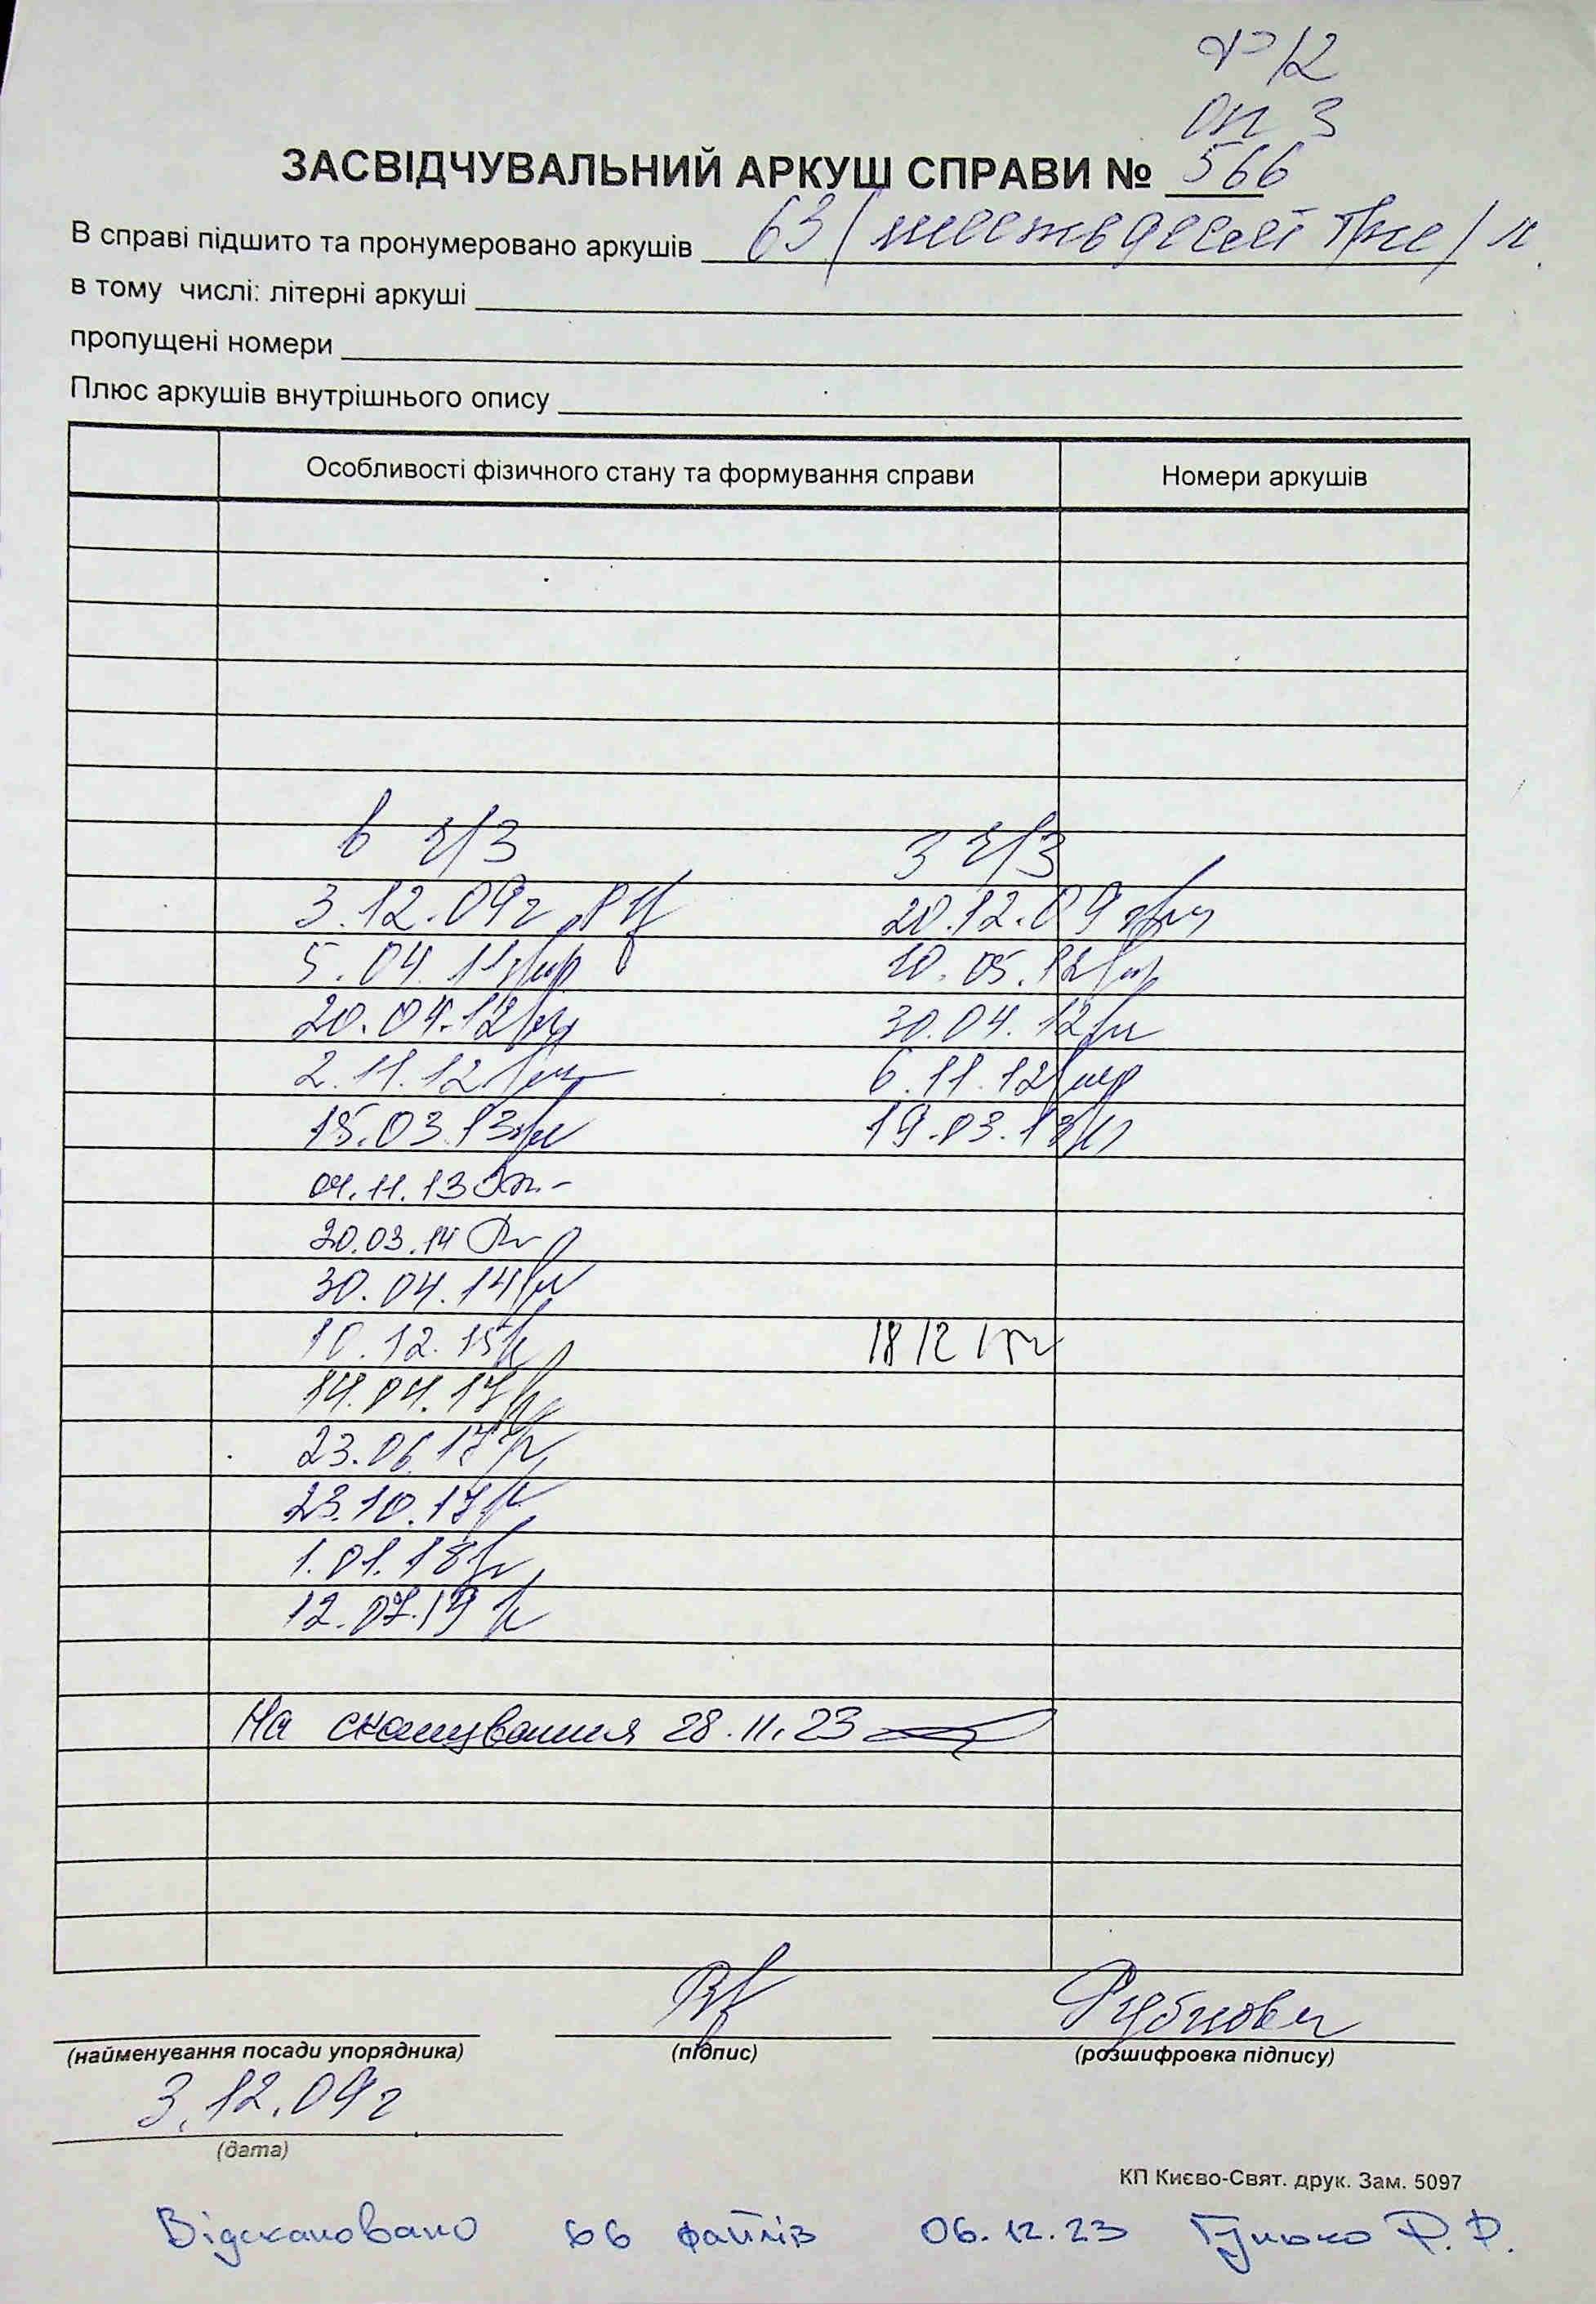 Р12
оп 3
ЗАСВІДЧУВАЛЬНИЙ АРКУШ СПРАВИ № 566
В справі підшито та пронумеровано аркушів 63 / шестьдесят три /
в тому числі: літерні аркуші
пропущені номери
Плюс аркушів внутрішнього опису
Особливості фізичного стану та формування справи Номери аркушів
в ч/з з ч/з
3.12.09г 20.12.09
5.04.11 10.05.12
20.04.12 30.04.12
2.11.12 6.11.12
15.03.13 19.03.13
04.11.13
20.03.14
30.04.14
10.12.15 18 12
14.04.17
23.06.17
23.10.17
1.01.18
12.07.19
На сканування 28.11.23
(найменування посади упорядника) (підпис) (розшифровка підпису)
3.12.09г
(дата)
КП Києво-Свят. друк. Зам. 5097
Відскановано 66 файлів 06.12.23